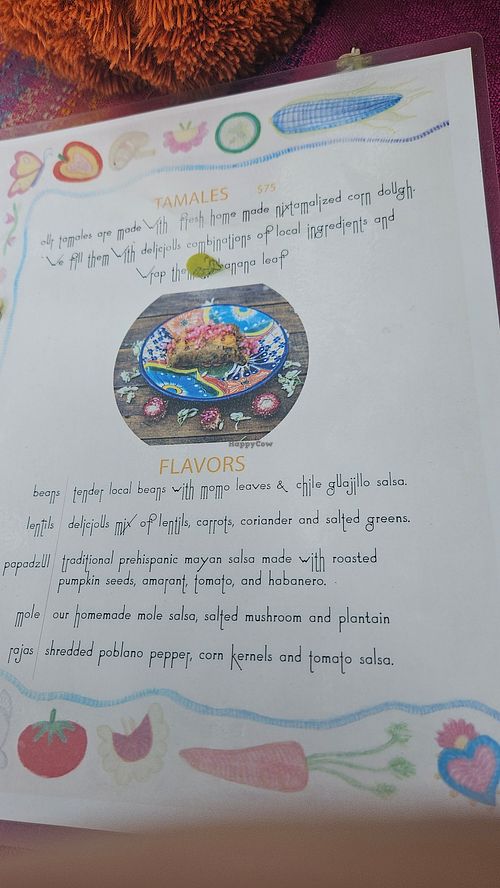 TAMALES $75
our tamales are made with fresh home made nixtamalized corn dough.
We fill them with delicious combinations of local ingredients and
Wrap the banana leaf
HappyCow
FLAVORS
beans tender local beans with momo leaves & chile guajillo salsa.
lentils delicious mix of lentils, carrots, coriander and salted greens.
papadzul traditional prehispanic mayan salsa made with roasted
pumpkin seeds, amarant, tomato, and habanero.
mole our homemade mole salsa, salted mushroom and plantain
rajas shredded poblano pepper, corn kernels and tomato salsa.